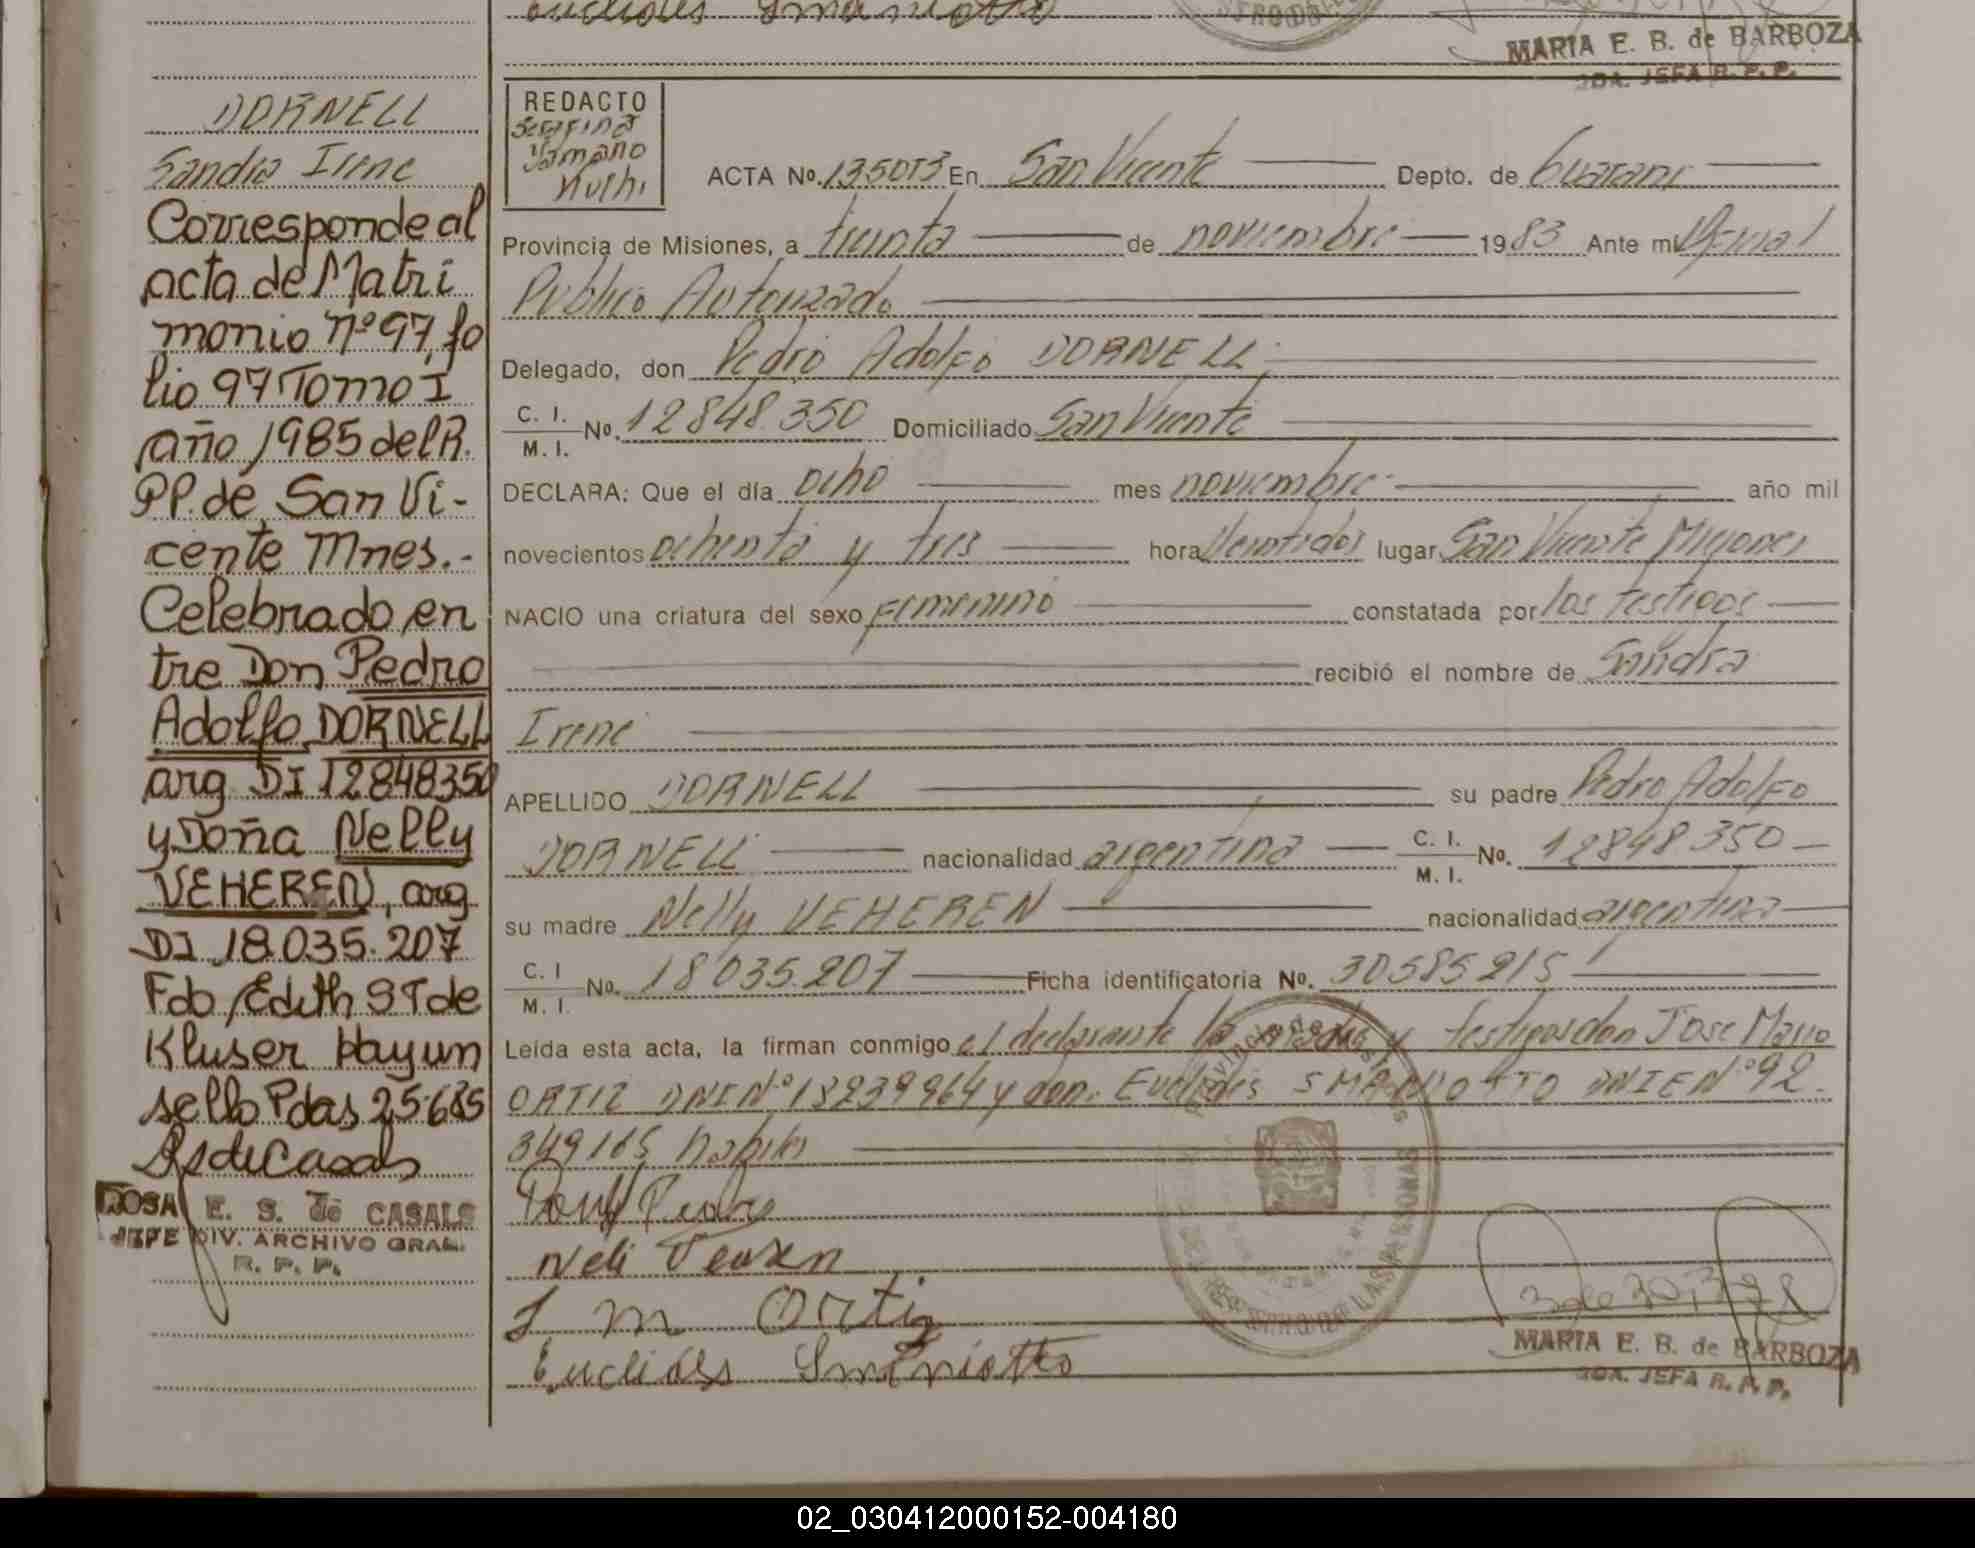 Euclides Smaniotto
MARIA E. B. de BARBOZA
2DA. JEFA R. P. P.
DORNELL
Sandra Irene
Corresponde al
acta de Matri
monio nº 97, fo
lio 97 Tomo I
año 1985 del R.
PP. de San Vi-
cente Mnes.-
Celebrado en
tre Don Pedro
Adolfo DORNELL
arg. DI 12848350
y Doña Nelly
VEHEREN, arg
DI 18.035.207
Fdo Edith S T de
Kluser Hay un
sello Pdas 25-6-85
RsdeCasals
ROSA E. S. de CASALS
JEFE DIV. ARCHIVO GRAL.
R. P. P.
REDACTO
Serafina
Yamano
ACTA Nº. 135013 En San Vicente Depto. de Guarani
Provincia de Misiones, a treinta de noviembre 1983 Ante mi Oficial
Publico Autorizado
Delegado, don Pedro Adolfo DORNELL
C. I.
M. I. Nº. 12848.350 Domiciliado San Vicente
DECLARA: Que el día ocho mes noviembre año mil
novecientos ochenta y tres hora Veintidos lugar San Vicente Misiones
NACIO una criatura del sexo femenino constatada por los testigos
recibió el nombre de Sandra
Irene
APELLIDO DORNELL su padre Pedro Adolfo
DORNELL nacionalidad argentina C. I. M. I. Nº. 12848350
su madre Nelly VEHEREN nacionalidad argentina
C. I
M. I. Nº. 18035.207 Ficha identificatoria Nº. 30585215
Leída esta acta, la firman conmigo el declarante la madre y testigos don Jose Mario
ORTIZ DNI Nº 18239964 y don Euclides SMANIOTTO DNIE Nº 92.
349165 habiles
Neli Veuren
J m Ortiz
Euclides Smaniotto
MARIA E. B. de BARBOZA
2DA. JEFA R. P. P.
02_030412000152-004180